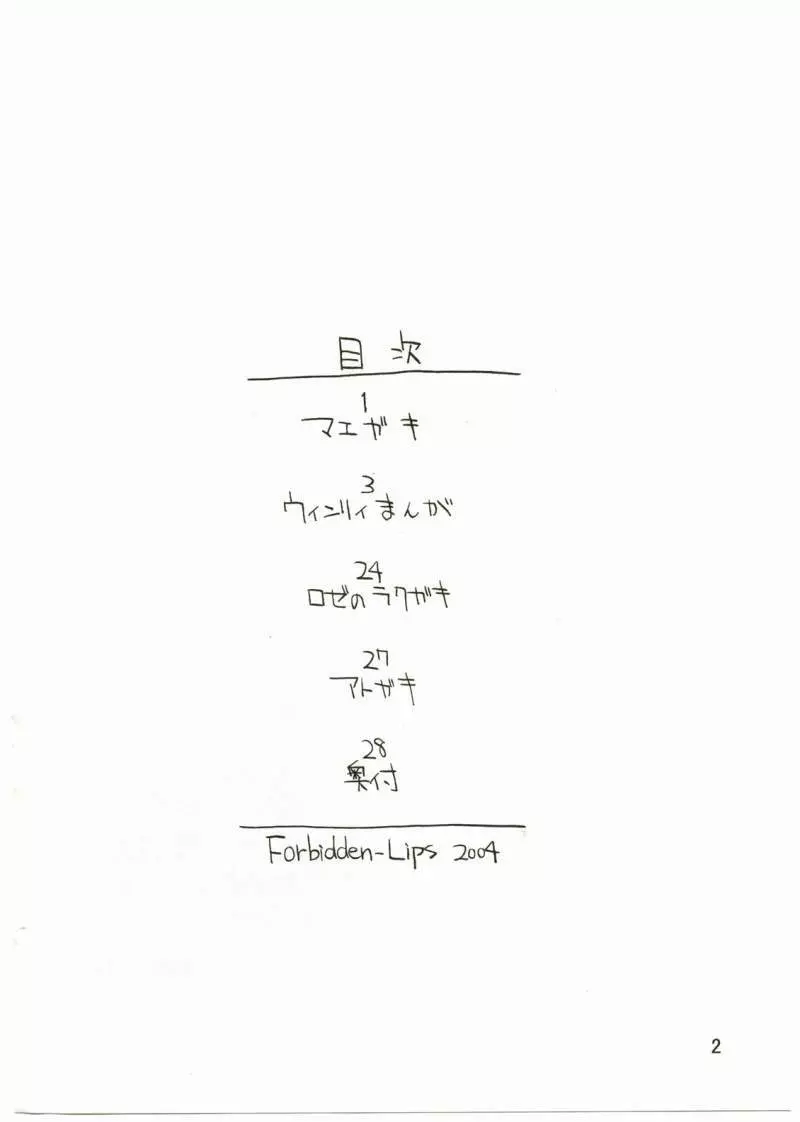 目次
1
マエガキ
3
ウィンリィまんが
24
ロゼのラクガキ
27
アトガキ
28
奥付
Forbidden-Lips 2004
2